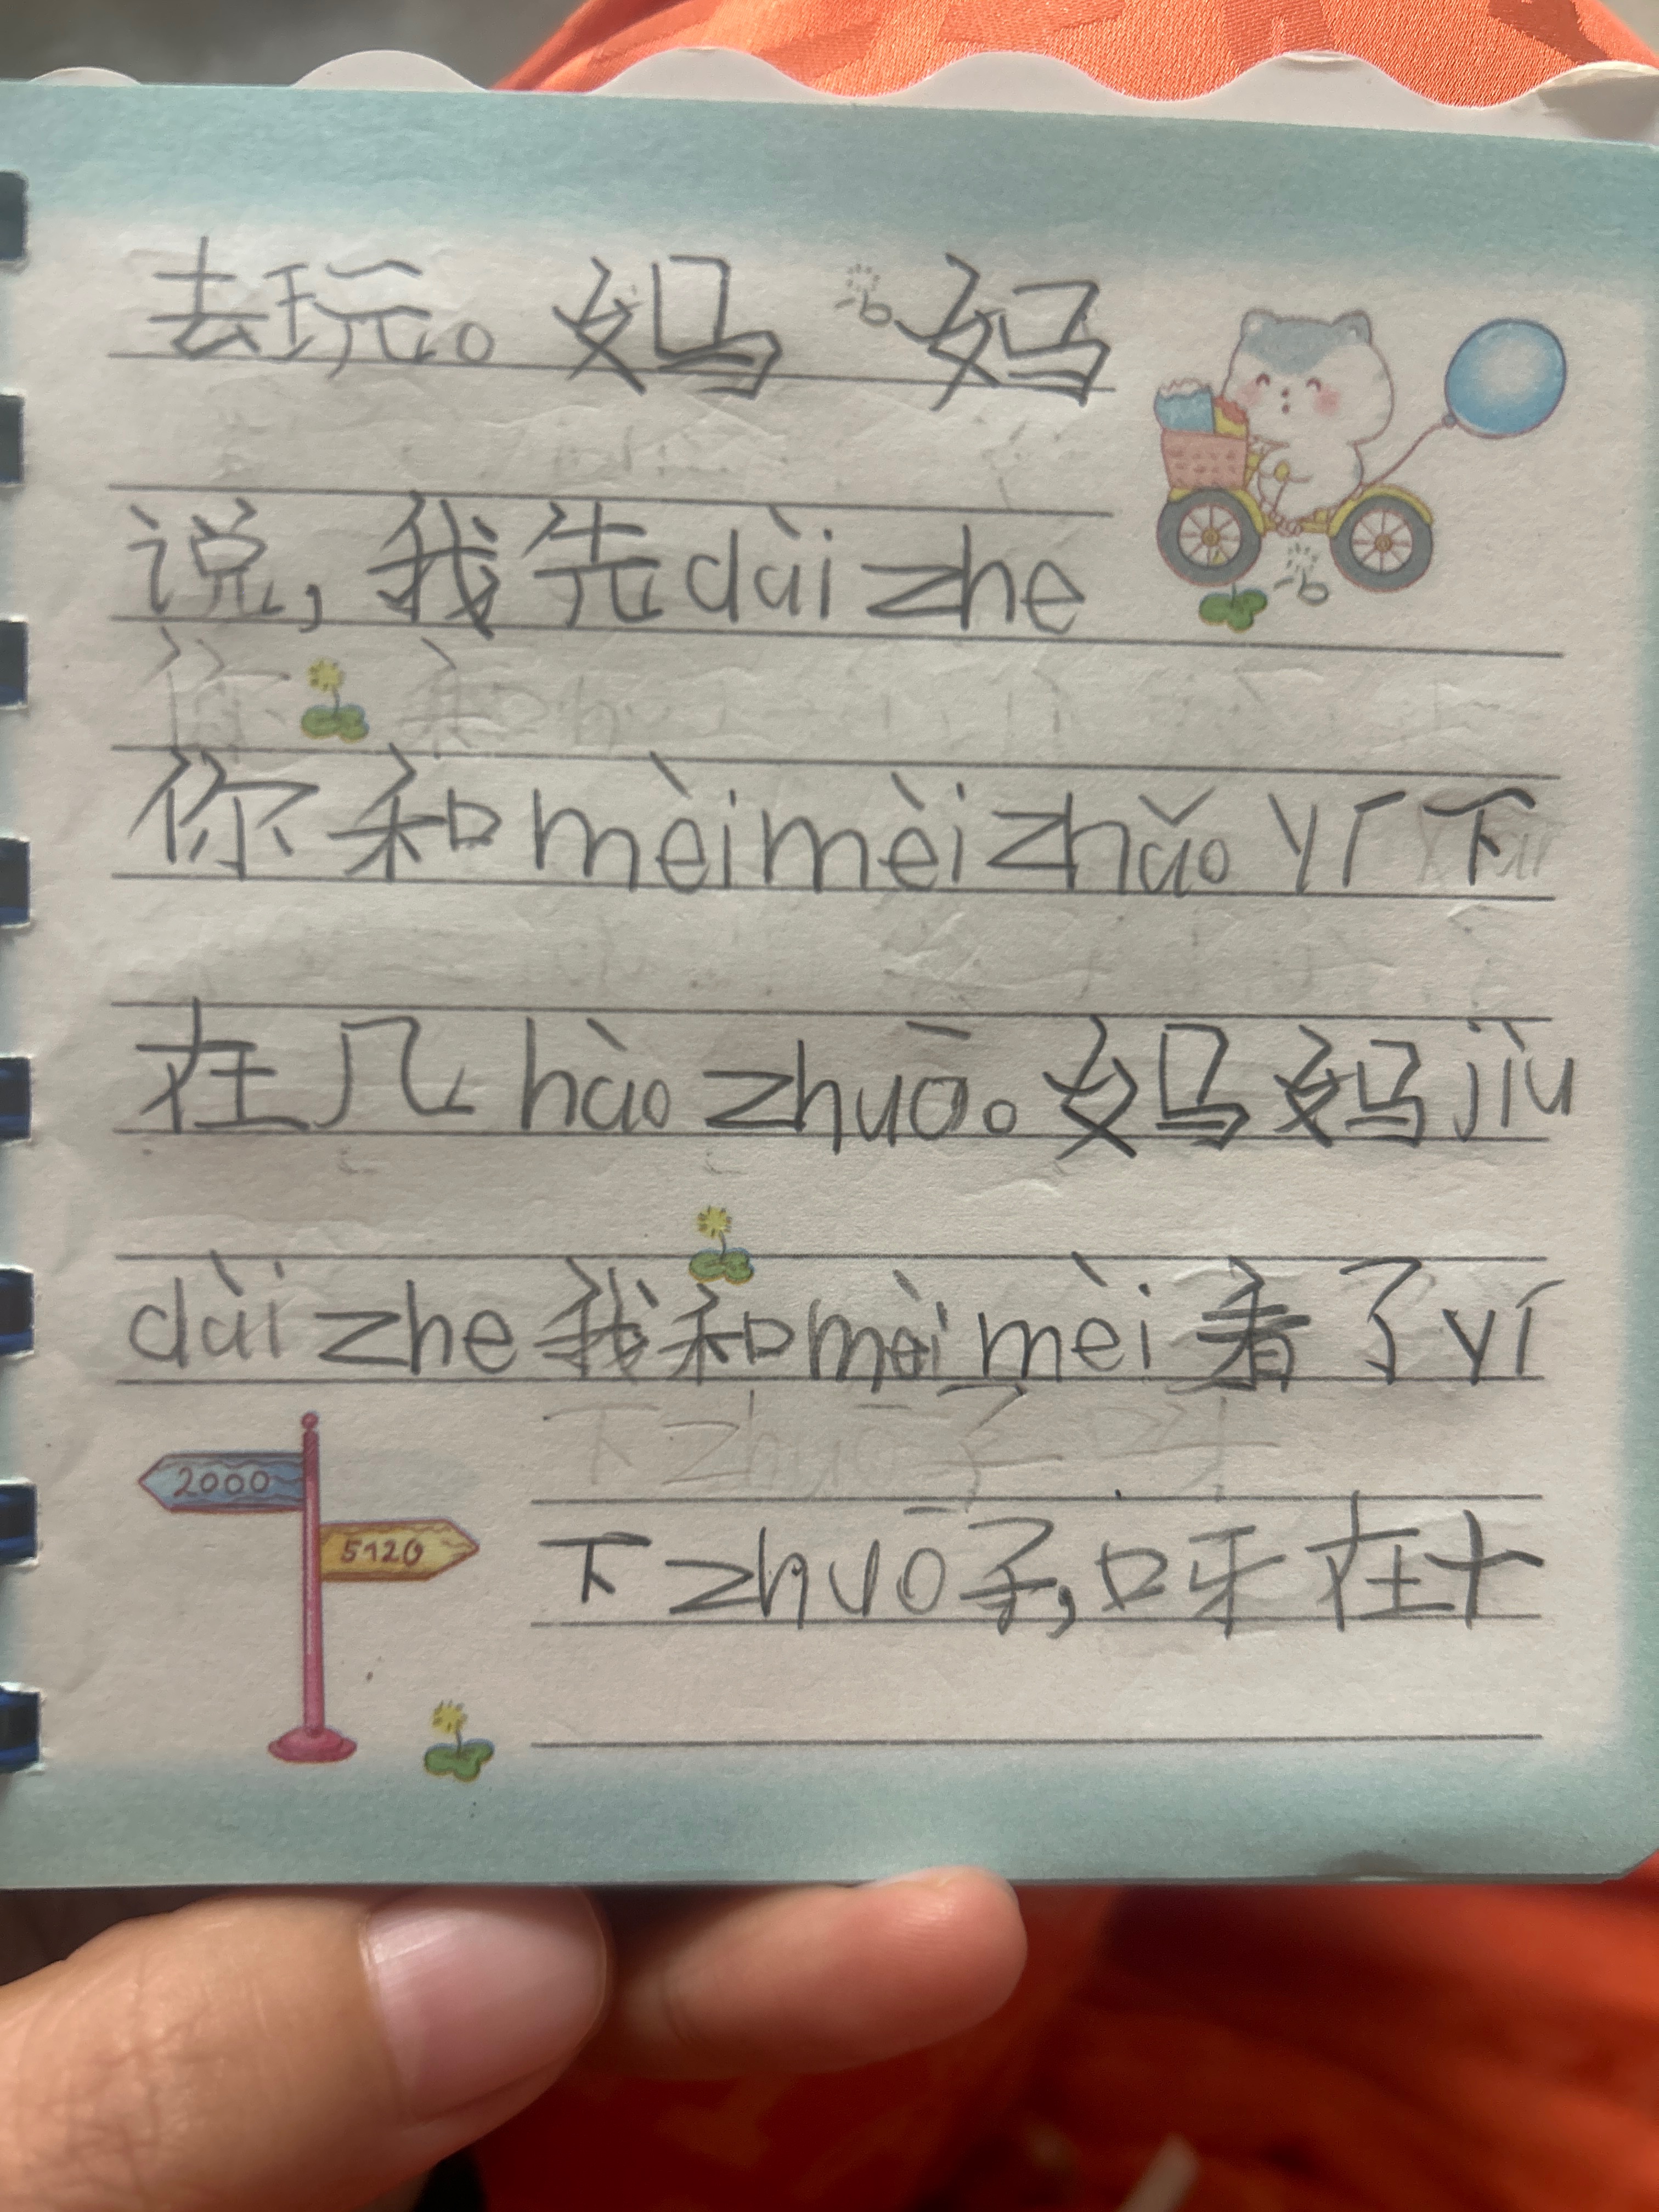 去玩。妈妈
说，我先dài zhe
你和mèimèi zhǎo yí下
在几hào zhuō。妈妈jiù
dài zhe我和mèimèi看了yí
2000
5120
下zhuō子，呀在十